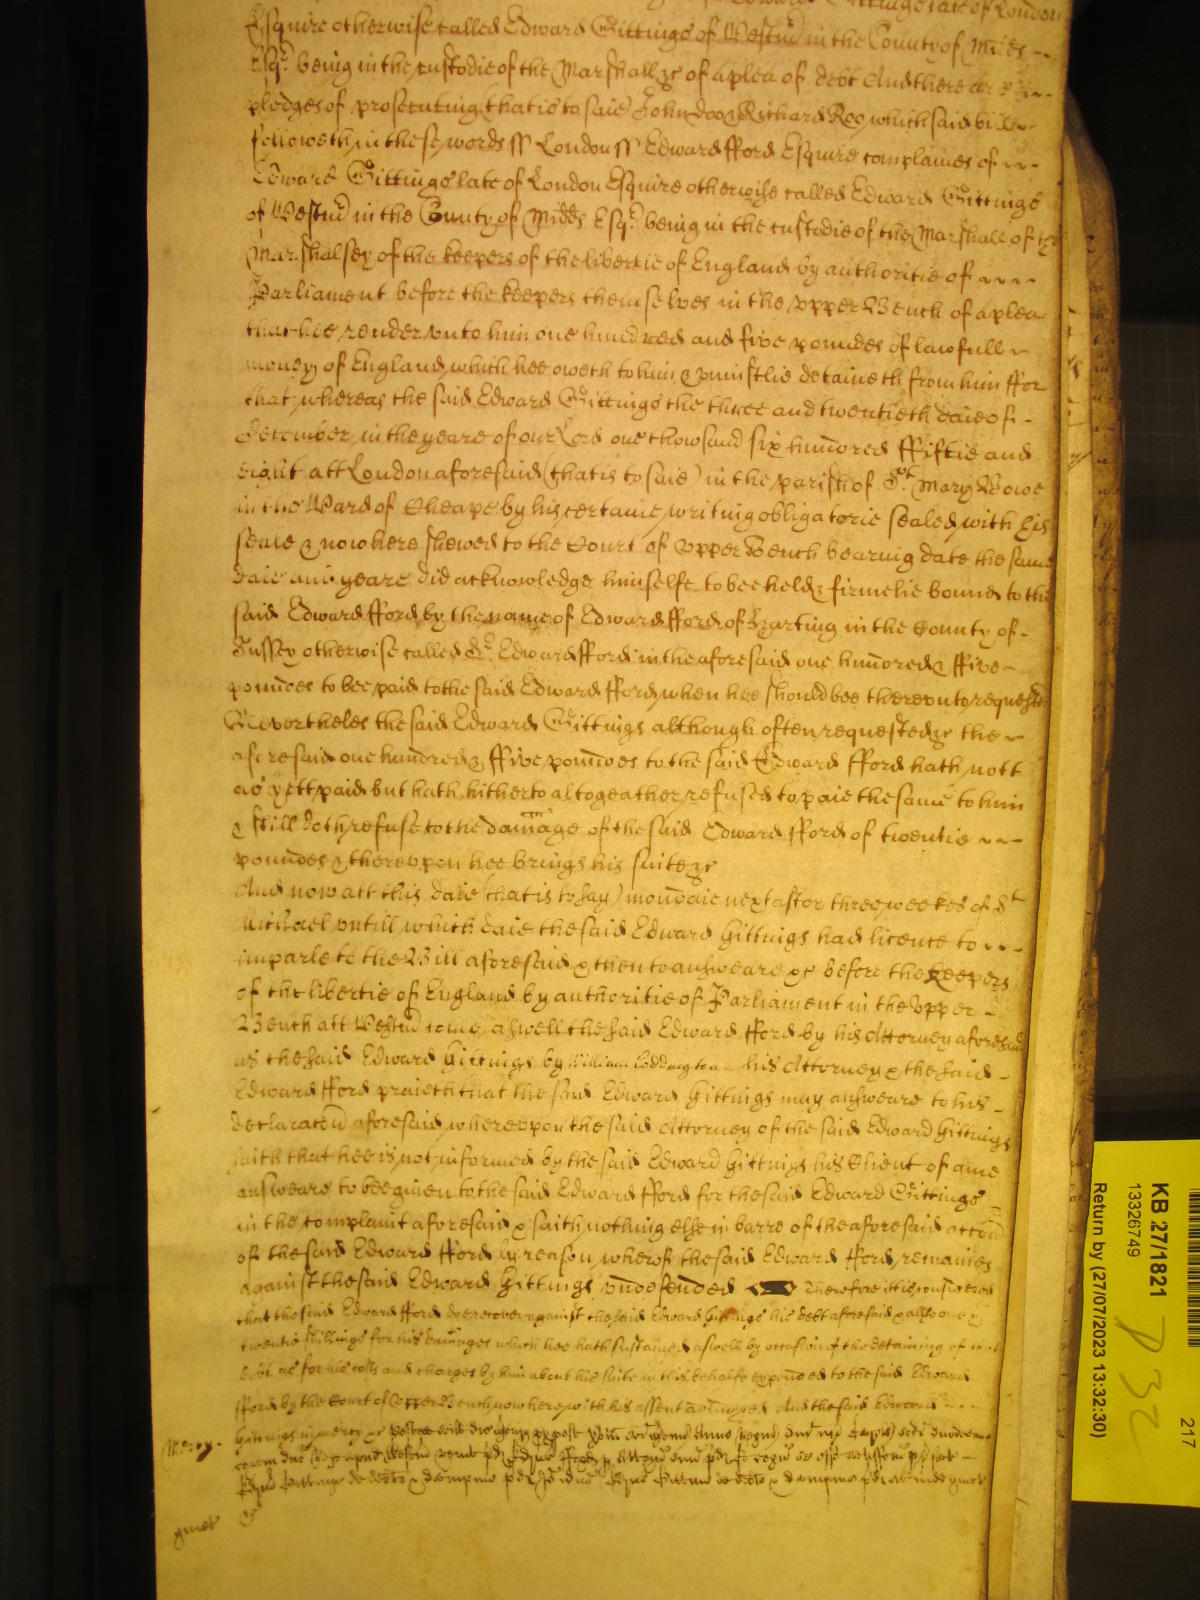 Edward Gittings late of London
Esquire otherwise called Edward Gittings of Westm in the County of Midds
Esqr. being in the custodie of the Marshall &c of a plea of debt And there are
pledges of prosecuting (that is to saie) John doo & Richard Roo, which said bill
followeth in these words ss London ss Edward fford Esquire complaines of
Edward Gittings late of London Esquire otherwise called Edward Gittings
of Westm in the County of Midds Esqr. being in the custodie of the Marshall of the
Marshalsey of the keepers of the libertie of England by authoritie of
Parliament before the keepers themselves in the vpper Bench of a plea
that hee render vnto him one hundred and five poundes of lawfull
money of England which hee oweth to him & vniustlie detaineth from him ffor
that whereas the said Edward Gittings the three and twentieth daie of
December in the yeare of our Lord one thowsand six hundred ffiftie and
eight att London aforesaid (that is to saie) in the parish of St. Mary Bowe
in the Ward of Cheape by his certaine writing obligatorie sealed with his
seale & now here shewed to the Court of vpper Bench bearing date the same
daie and yeare did acknowledge himselfe to bee held & firmelie bound to the
said Edward fford by the name of Edward fford of Harting in the County of
Sussex otherwise called Sr. Edward fford in the aforesaid one hundred & ffive
poundes to bee paid to the said Edward fford when hee should bee therevnto requested
Nevertheles the said Edward Gittings although often requested &c the
aforesaid one hundred & ffive poundes to the said Edward fford hath nott
as yett paid but hath hitherto altogeather refused to paie the same to him
& still doth refuse to the damage of the said Edward fford of twentie
poundes & therevpon hee brings his suite &c
And now att this daie (that is to say) mondaie next after three weekes of St
Michael vntill which daie the said Edward Gittings had licence to
imparle to the Bill aforesaid & then to answeare &c before the Keepers
of the libertie of England by authoritie of Parliament in the vpper
Bench att Westm come aswell the said Edward fford by his Attorney aforesaid
as the said Edward Gittings by William Coddington his Attorney & the said
Edward fford praieth that the said Edward Gittings may answeare to his
declaracon aforesaid, wherevpon the said Attorney of the said Edward Gittings
saith that hee is not informed by the said Edward Gittings his Client of anie
answeare to bee given to the said Edward fford for the said Edward Gittings
in the complaint aforesaid & saith nothing else in barre of the aforesaid accon
of the said Edward fford by reason whereof the said Edward fford remaines
against the said Edward Gittings vndefended Therefore itt is considered
that the said Edward fford doe recover against the said Edward Gittings his debt aforesaid & alsoe
twentie shillings for his damages which hee hath sustained aswell by occasion of the detaining of that
debt as for his costs and charges by him about his suite in this behalfe expended to the said Edward
fford by the Court of Vpper Bench now here with his assent adiudged And the said Edward
Mercy
Gittings in mercy &c
&c
KB 27/1821
13326749
Return by (27/07/2023 13:32:30)
217